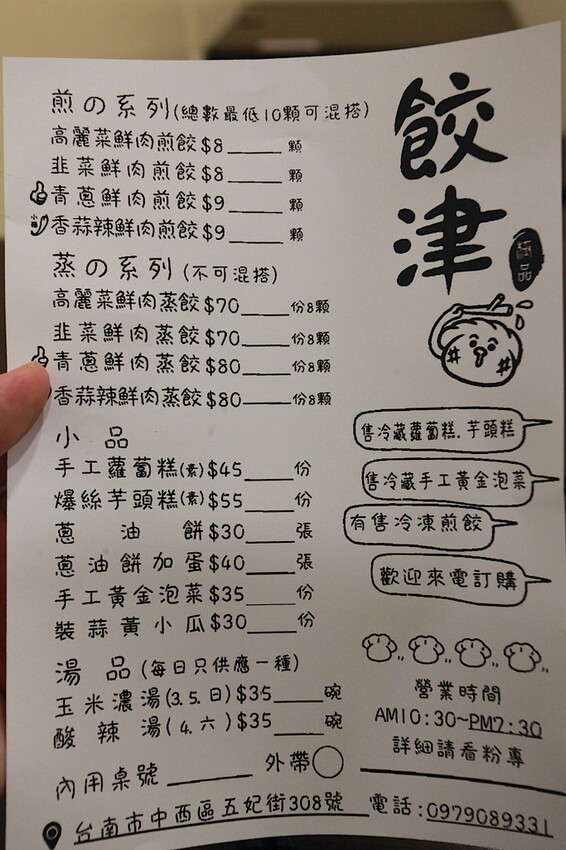 餃津
極品
煎の系列(總數最低10顆可混搭)
高麗菜鮮肉煎餃$8____顆
韭菜鮮肉煎餃$8____顆
青蔥鮮肉煎餃$9____顆
小辣 香蒜辣鮮肉煎餃$9____顆
蒸の系列(不可混搭)
高麗菜鮮肉蒸餃$70____份8顆
韭菜鮮肉蒸餃$70____份8顆
青蔥鮮肉蒸餃$80____份8顆
香蒜辣鮮肉蒸餃$80____份8顆
小品
手工蘿蔔糕(素)$45____份
爆絲芋頭糕(素)$55____份
蔥油餅$30____張
蔥油餅加蛋$40____張
手工黃金泡菜$35____份
裝蒜黃小瓜$30____份
湯品(每日只供應一種)
玉米濃湯(3.5.日)$35____碗
酸辣湯(4.六)$35____碗
內用桌號______ 外帶○
售冷藏蘿蔔糕.芋頭糕
售冷藏手工黃金泡菜
有售冷凍煎餃
歡迎來電訂購
營業時間
AM10:30~PM7:30
詳細請看粉專
台南市中西區五妃街308號 電話:0979089331